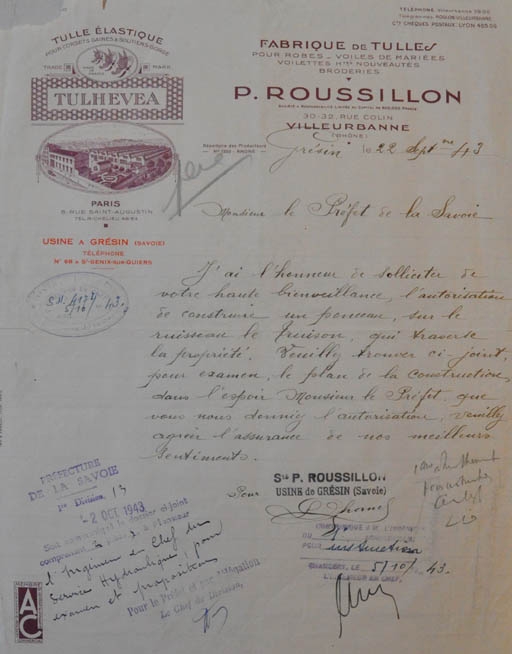 TÉLÉPHONE, Villeurbanne 79.86
Télégrammes ROSLON-VILLEURBANNE
C/c CHÈQUES POSTAUX: LYON 455.55
TULLE ÉLASTIQUE
POUR CORSETS GAINES & SOUTIENS-GORGE
TRADE MARK
TULHEVEA
FABRIQUE DE TULLES
POUR ROBES - VOILES DE MARIÉES
VOILETTES Htes NOUVEAUTÉS
BRODERIES
P. ROUSSILLON
SOCIÉTÉ A RESPONSABILITÉ LIMITÉE AU CAPITAL DE
30-32, RUE COLIN
VILLEURBANNE
(RHONE)
Répertoire des Producteurs
Nº 1320 - RHONE
PARIS
8, RUE SAINT-AUGUSTIN
TEL. RICHELIEU
USINE A GRÉSIN (SAVOIE)
TÉLÉPHONE
Nº 68 A St-GENIX-SUR-GUIERS
Grésin, le 22 Septbre 43
Monsieur le Préfet de la Savoie
J'ai l'honneur de solliciter de
votre haute bienveillance, l'autorisation
de construire un ponceau, sur le
ruisseau le Truison, qui traverse
la propriété. Veuillez trouver ci-joint,
pour examen, le plan de la construction,
dans l'espoir Monsieur le Préfet, que
vous nous donniez l'autorisation, veuillez
agréer l'assurance de nos meilleurs
sentiments.
S.H. 4127
5/10 - 43
PRÉFECTURE
DE LA SAVOIE
1re Division 13
-2 OCT 1943
Soit communiqué le dossier ci-joint
comprenant 2 pièces à Monsieur
l'Ingénieur en Chef du
Service Hydraulique pour
examen et propositions
Pour le Préfet et par délégation
Le Chef de Division,
Pour
Sté P. ROUSSILLON
USINE de GRÉSIN (Savoie)
COMMUNIQUÉ A M. L'INGÉNIEUR
POUR instruction
CHAMBÉRY, LE 5/10/43.
L'INGÉNIEUR EN CHEF,
AC